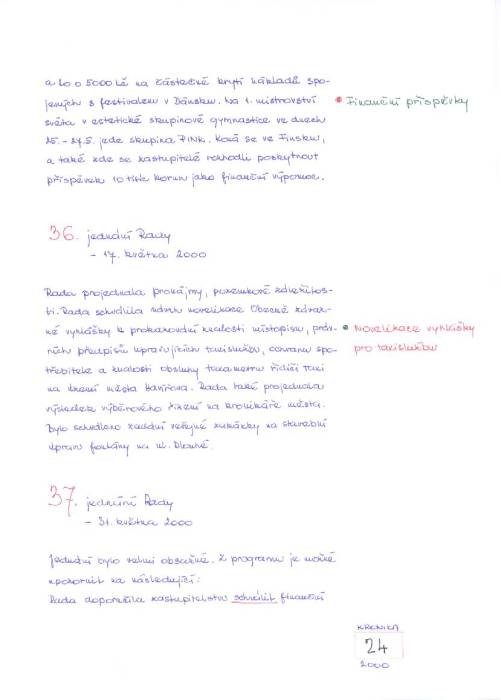 a to o 5000 Kč na částečné krytí nákladů spo-
jených s festivalem v Dánsku. Na 1. mistrovství
světa v estetické skupinové gymnastice ve dnech
25. - 27.5. jede skupina PINK. Koná se ve Finsku,
a také zde se zastupitelé rozhodli poskytnout
příspěvek 10 tisíc korun jako finanční výpomoc.
Finanční příspěvky
36. jednání Rady
- 17. května 2000
Rada projednala pronájmy, pozemkové záležitos-
ti. Rada schválila návrh novelizace Obecně závaz-
né vyhlášky k prokazování znalosti místopisu, práv-
ních předpisů upravujících taxislužbu, ochranu spo-
třebitele a znalosti obsluhy taxametru řidiči taxi
na území města Havířova. Rada také projednala
výsledek výběrového řízení na kronikáře města.
Bylo schváleno zadání veřejné zakázky na stavební
úpravu fontány na ul. Dlouhé.
Novelizace vyhlášky
pro taxislužbu
37. jednání Rady
- 31. května 2000
Jednání bylo velmi obsažné. Z programu je možné
upozornit na následující:
Rada doporučila zastupitelstvu schválit finanční
KRONIKA
24
2000